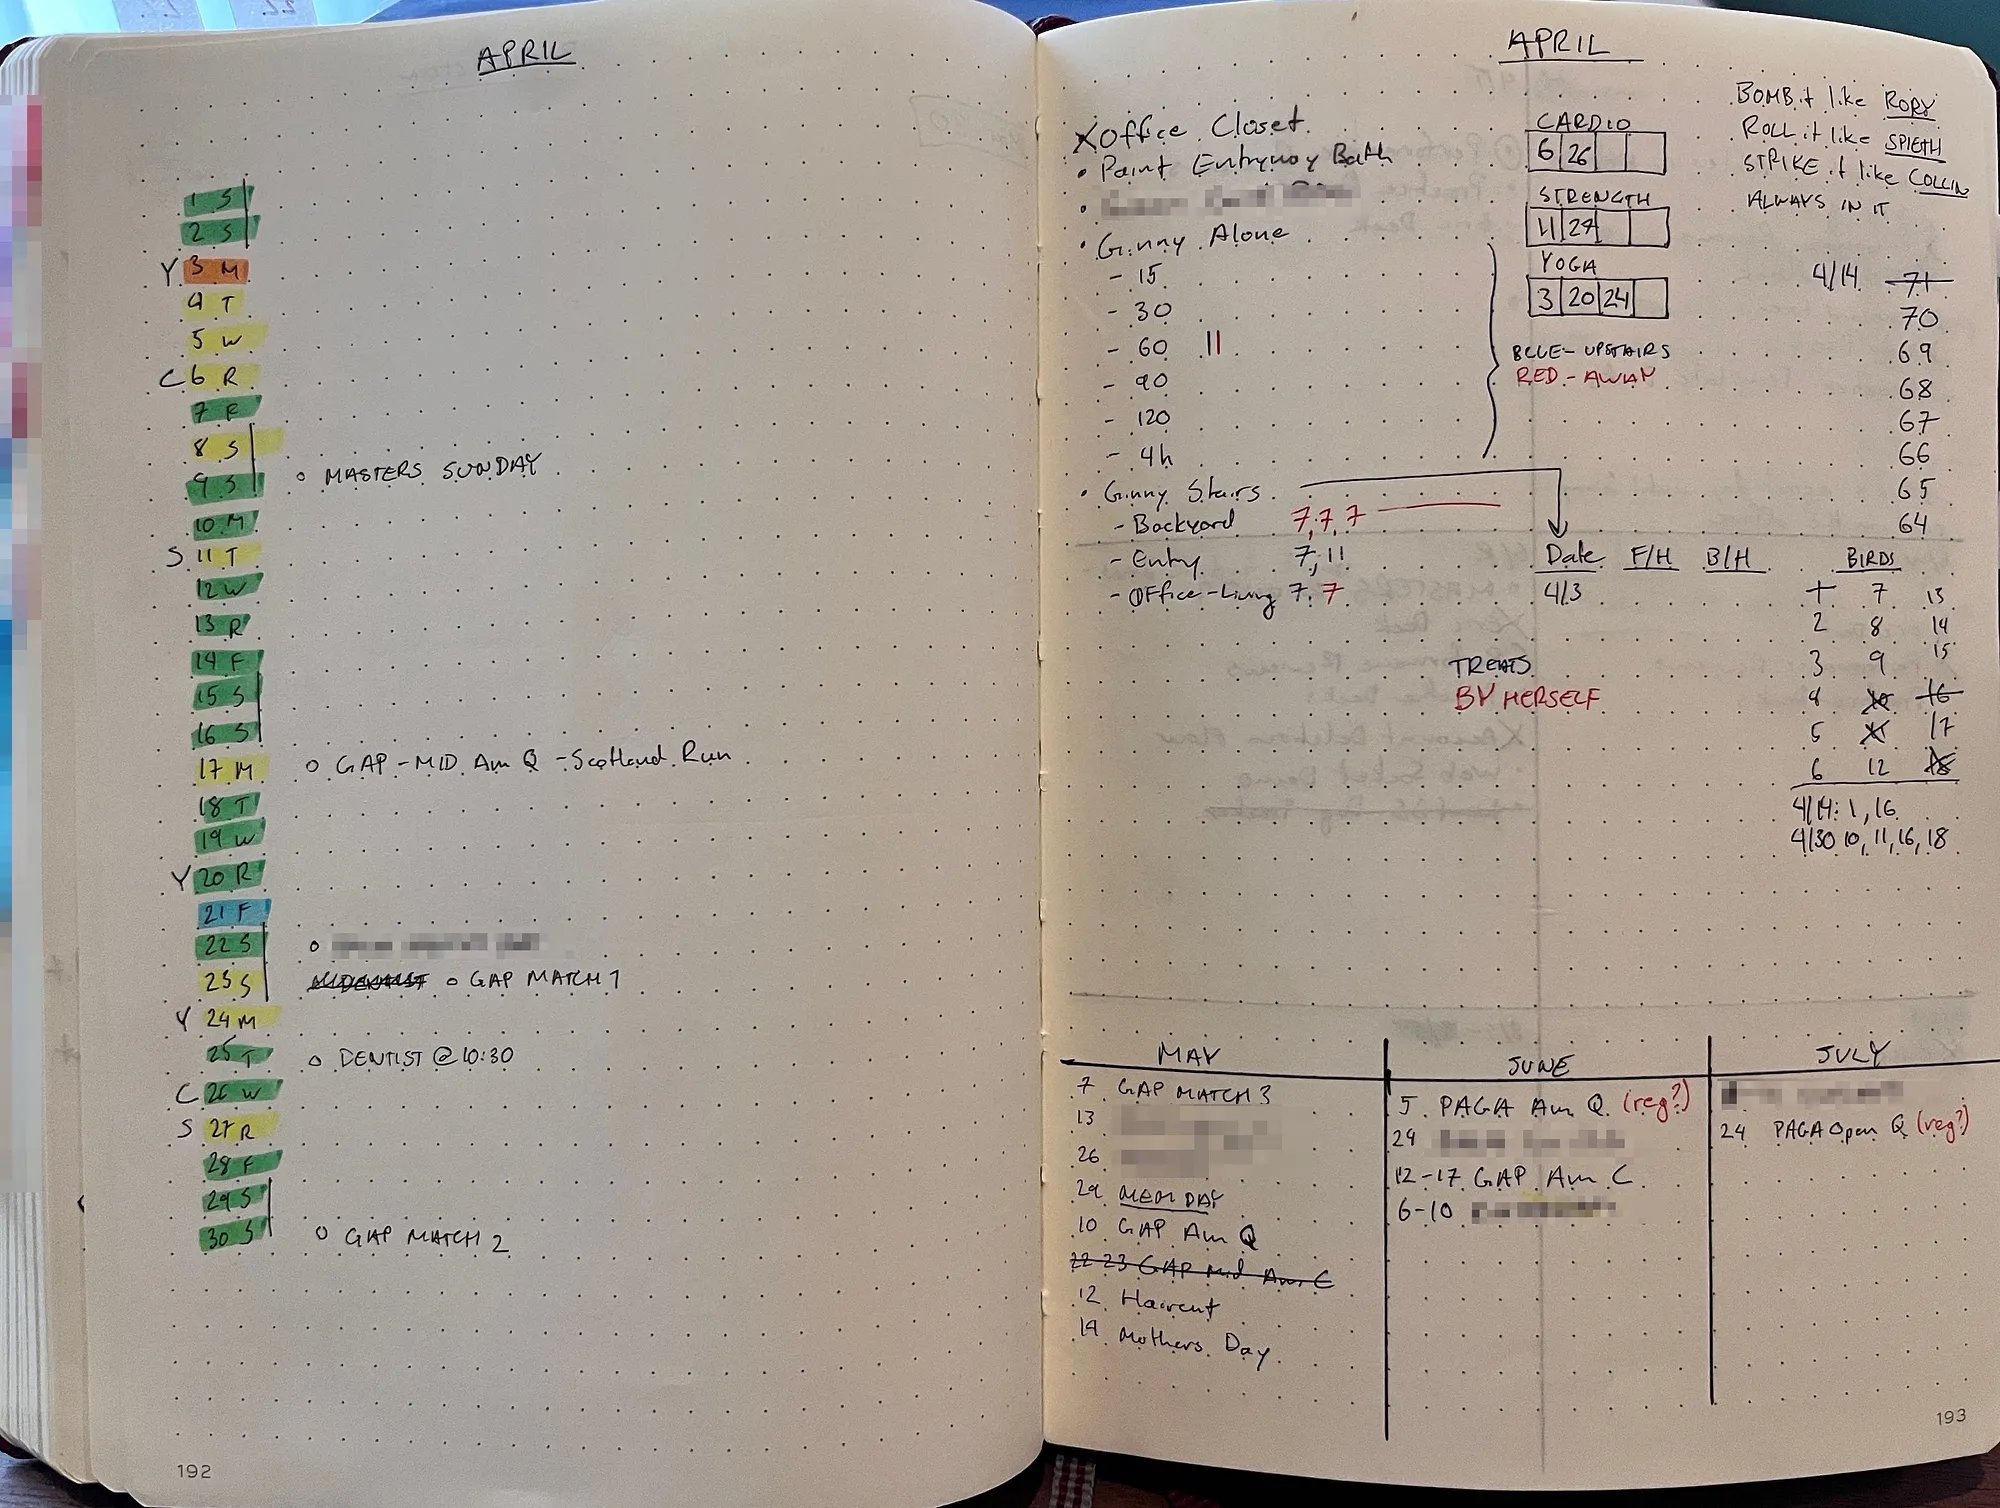 APRIL
1 S
2 S
Y 3 M
4 T
5 W
C 6 R
7 F
8 S
9 S ○ MASTERS SUNDAY
10 M
S 11 T
12 W
13 R
14 F
15 S
16 S
17 M ○ GAP - MID Am Q - Scotland Run
18 T
19 W
Y 20 R
21 F
22 S ○
23 S ○ GAP MATCH 1
Y 24 M
25 T ○ DENTIST @ 10:30
C 26 W
S 27 R
28 F
29 S
30 S ○ GAP MATCH 2
192
APRIL
X Office Closet
• Paint Entryway Bath
•
• Ginny Alone
- 15
- 30
- 60 ||
- 90
- 120
- 4h
• Ginny Stairs
- Backyard 7, 7, 7
- Entry 7, 11
- Office-Living 7, 7
CARDIO
6 26
STRENGTH
11 27
YOGA
3 20 24
BLUE - UPSTAIRS
RED - AWAY
BOMB it like RORY
ROLL it like SPIETH
STRIKE it like COLLIN
ALWAYS IN IT
4/14 71
70
69
68
67
66
65
64
Date F/H B/H
4/3
TREATS
BY HERSELF
BIRDS
1 7 13
2 8 14
3 9 15
4 10 16
5 11 17
6 12 18
4/14: 1, 16
4/30 10, 11, 16, 18
MAY
7 GAP MATCH 3
13
26
29 MEM DAY
10 GAP Am Q
22-23 GAP Mid Am C
12 Haircut
14 Mothers Day
JUNE
5 PAGA Am Q (reg?)
24
12-17 GAP Am C
6-10
JULY
24 PAGA Open Q (reg?)
193